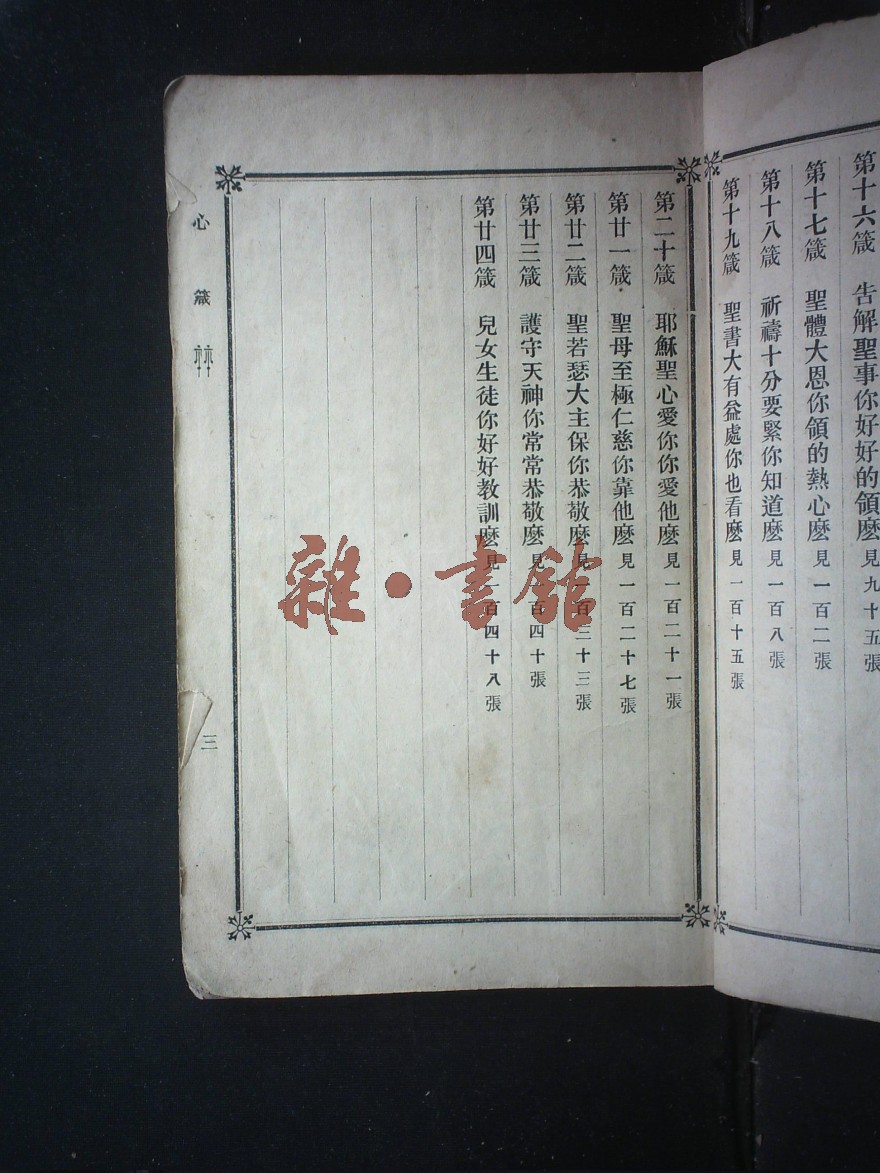 第十六箴 告解聖事你好好的領麽 見九十五張
第十七箴 聖體大恩你領的熱心麽 見一百二張
第十八箴 祈禱十分要緊你知道麽 見一百八張
第十九箴 聖書大有益處你也看麽 見一百十五張
第二十箴 耶穌聖心愛你你愛他麽 見一百二十一張
第廿一箴 聖母至極仁慈你靠他麽 見一百二十七張
第廿二箴 聖若瑟大主保你恭敬麽 見一百三十三張
第廿三箴 護守天神你常常恭敬麽 見一百四十張
第廿四箴 兒女生徒你好好教訓麽 見一百四十八張
心箴
三
雜·書館